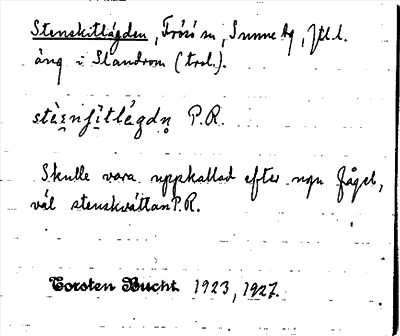 Stenskitlägden, Frösö sn, Sunne tg, Jtl.l.
äng i Slandrom (trol.).
P.R.
Skulle vara uppkallad efter ngn fågel,
väl stenskvättan P.R.
Torsten Bucht. 1923, 1927.